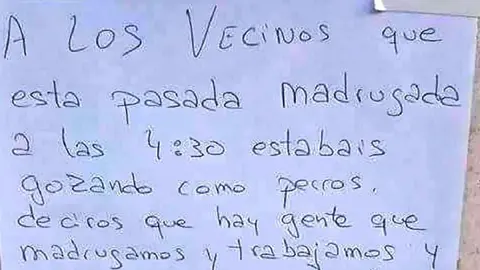 A LOS VECINOS que
esta pasada madrugada
a las 4:30 estabais
gozando como perros.
deciros que hay gente que
madrugamos y trabajamos y